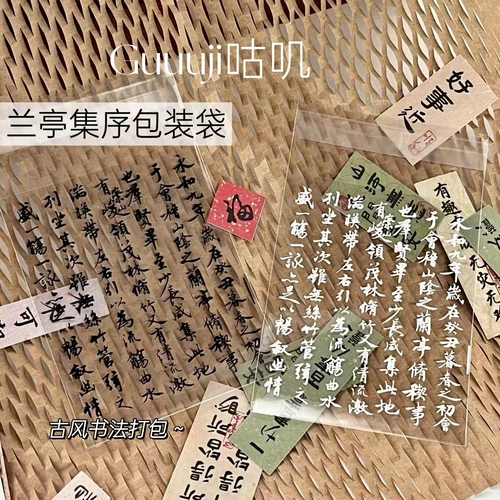 Guuuji咕叽
兰亭集序包装袋
好事近
福
永和九年歲在癸丑暮春之初會
于會稽山陰之蘭亭脩稧事
也羣賢畢至少長咸集此地
有峻領茂林脩竹又有清流激
湍暎帶左右引以為流觴曲水
列坐其次雖無絲竹管弦之
盛一觴一詠暢敘幽情
永和九年歲在癸丑暮春之初會
于會稽山陰之蘭亭脩稧事
也羣賢畢至少長咸集此地
有峻領茂林脩竹又有清流激
湍暎帶左右引以為流觴曲水
列坐其次雖無絲竹管弦之
盛一觴一詠亦足以暢敘幽情
山河
有趣
无灾无
可
所得皆所
古风书法打包 ~